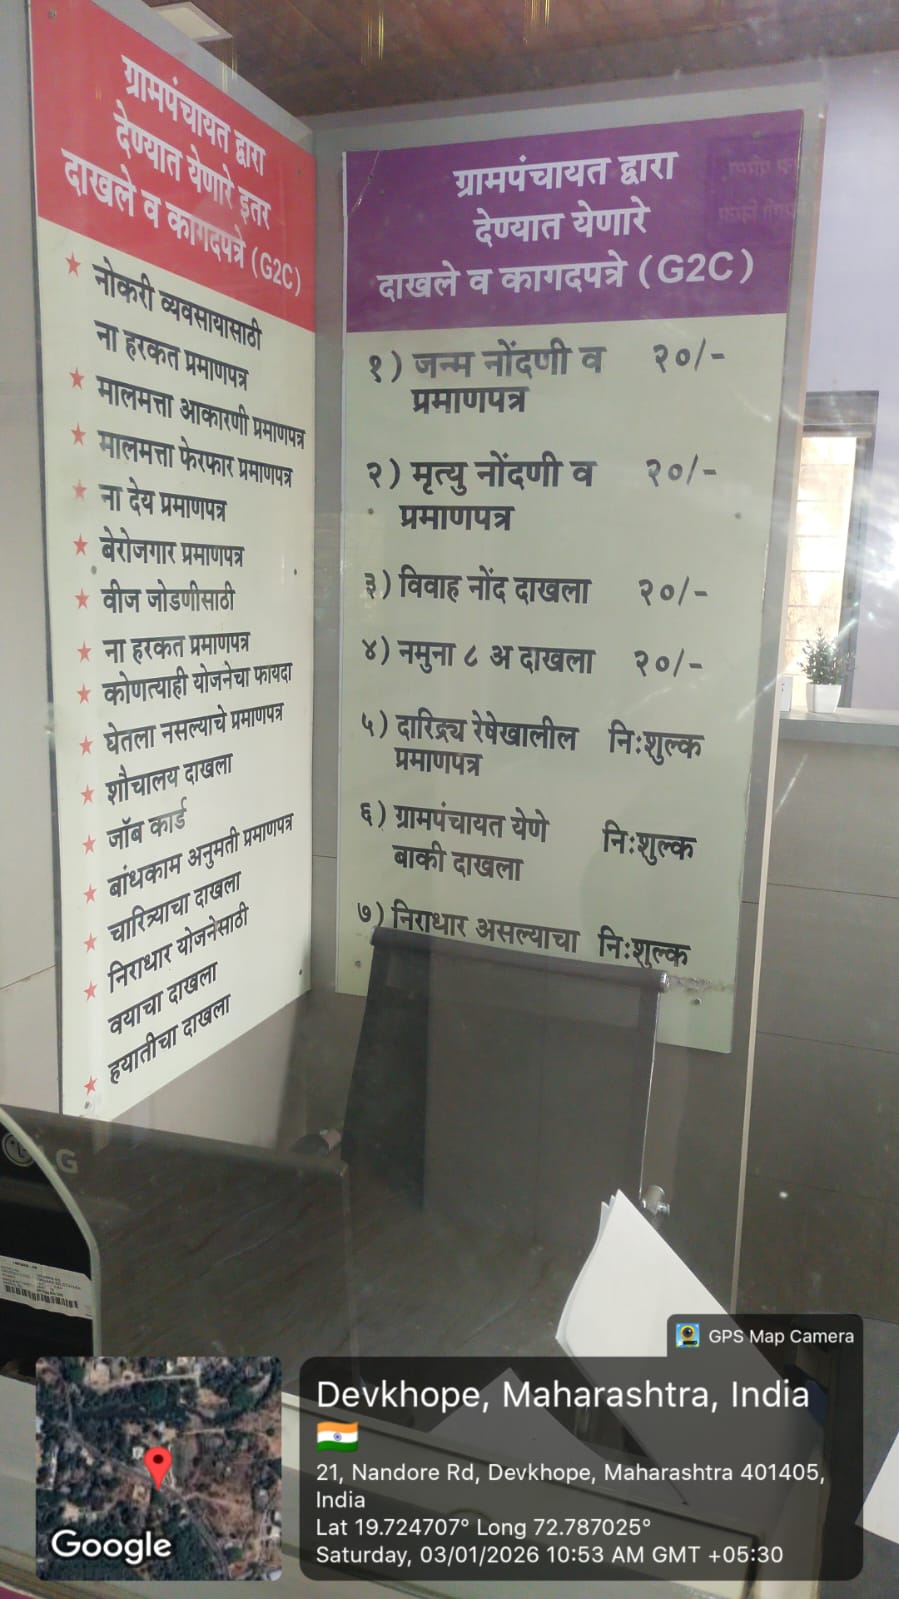 ग्रामपंचायत द्वारा
देण्यात येणारे इतर
दाखले व कागदपत्रे (G2C)
★ नोकरी व्यवसायासाठी
ना हरकत प्रमाणपत्र
★ मालमत्ता आकारणी प्रमाणपत्र
★ मालमत्ता फेरफार प्रमाणपत्र
★ ना देय प्रमाणपत्र
★ बेरोजगार प्रमाणपत्र
★ वीज जोडणीसाठी
★ ना हरकत प्रमाणपत्र
★ कोणत्याही योजनेचा फायदा
★ घेतला नसल्याचे प्रमाणपत्र
★ शौचालय दाखला
★ जॉब कार्ड
★ बांधकाम अनुमती प्रमाणपत्र
★ चारित्र्याचा दाखला
★ निराधार योजनेसाठी
वयाचा दाखला
★ हयातीचा दाखला
ग्रामपंचायत द्वारा
देण्यात येणारे
दाखले व कागदपत्रे (G2C)
१) जन्म नोंदणी व २०/-
प्रमाणपत्र
२) मृत्यु नोंदणी व २०/-
प्रमाणपत्र
३) विवाह नोंद दाखला २०/-
४) नमुना ८ अ दाखला २०/-
५) दारिद्र्य रेषेखालील नि:शुल्क
प्रमाणपत्र
६) ग्रामपंचायत येणे नि:शुल्क
बाकी दाखला
७) निराधार असल्याचा नि:शुल्क
LG
GPS Map Camera
Google
Devkhope, Maharashtra, India
21, Nandore Rd, Devkhope, Maharashtra 401405,
India
Lat 19.724707° Long 72.787025°
Saturday, 03/01/2026 10:53 AM GMT +05:30